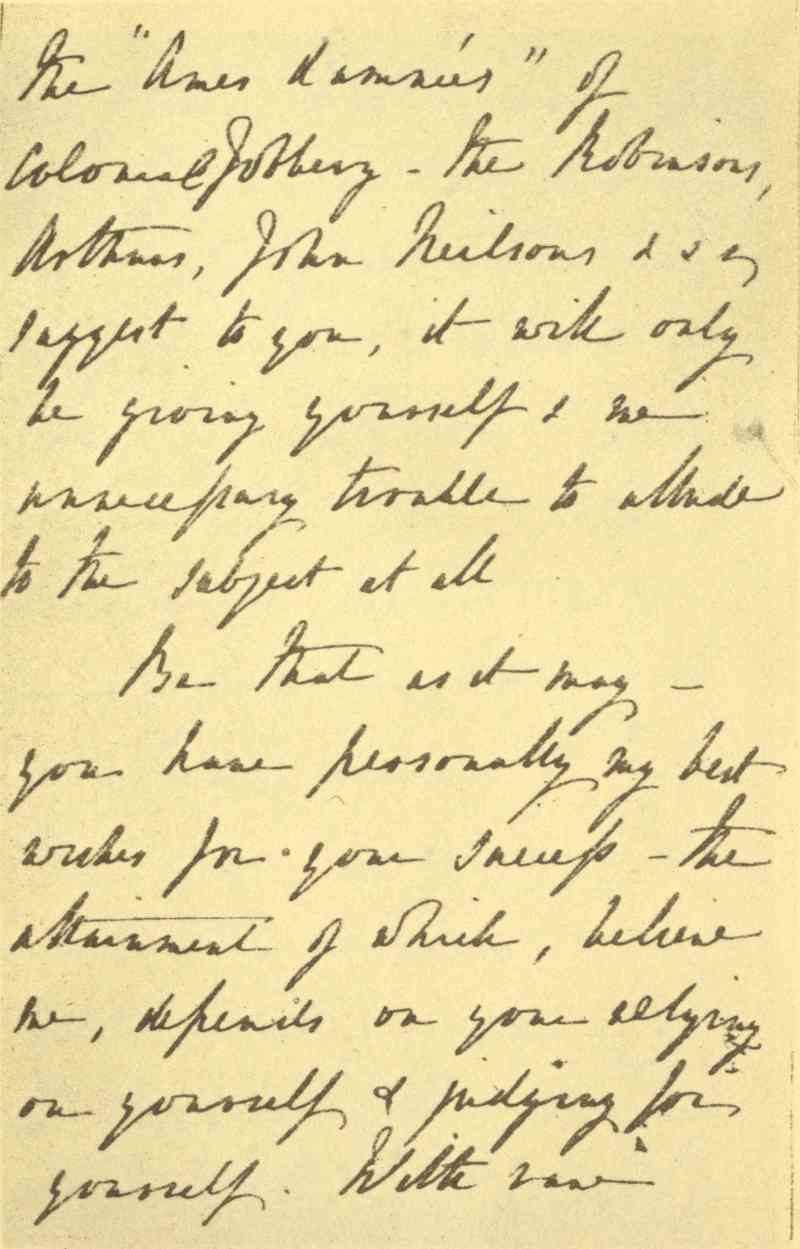 the "Ames damnées" of
Colonial Jobbery - the Robinsons,
Arthurs, John Neilsons &
suggest to you, it will only
be giving yourself & me
unnecessary trouble to allude
to the subject at all
Be that as it may -
you have personally my best
wishes for your success - the
attainment of which, believe
me, depends on your relying
on yourself & judging for
yourself. With